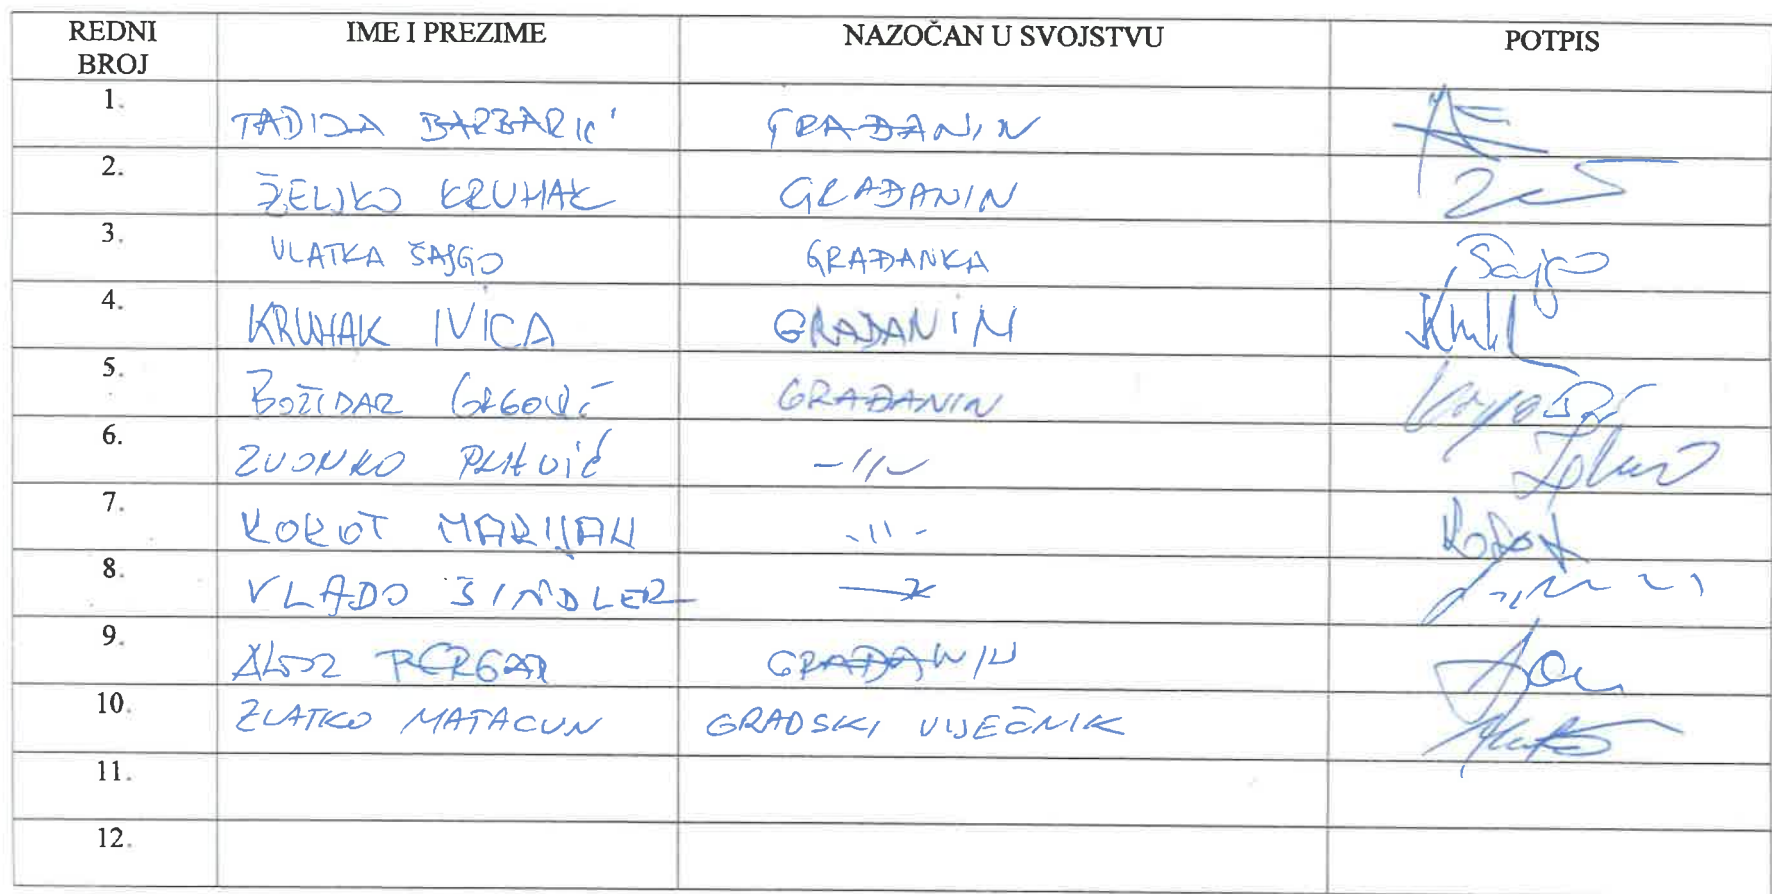 REDNI BROJ IME I PREZIME NAZOČAN U SVOJSTVU POTPIS
1. BARBARIĆ GRAĐANIN
2. ŽELJKO KRUHAK GRAĐANIN
3. VLATKA ŠAJGO GRAĐANKA
4. KRUHAK IVICA GRAĐANIN
5. BOŽIDAR GRGOVIĆ GRAĐANIN
6. ZVONKO -//-
7. KOKOT MARIJAN -//-
8. VLADO ŠINDLER
9. ALOJZ PERGAR GRAĐANIN
10. ZLATKO MATACUN GRADSKI VIJEĆNIK
11.
12.